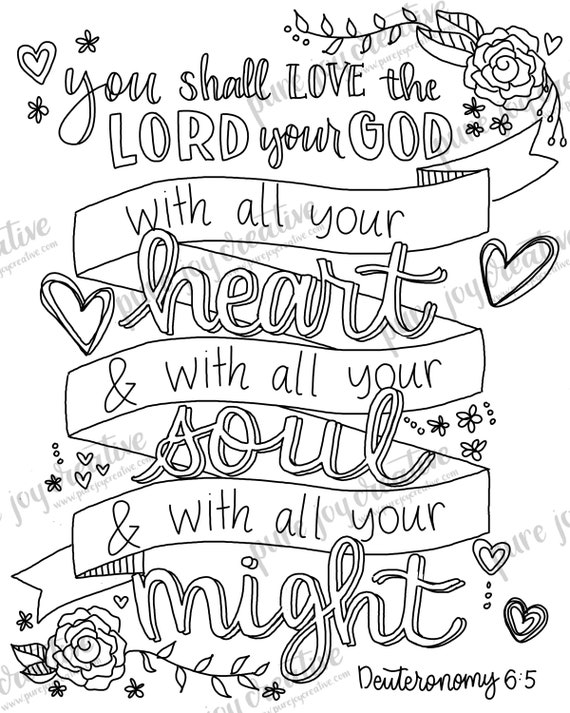 you shall LOVE the
LORD your GOD
with all your
heart
& with all your
soul
& with all your
might
Deuteronomy 6:5
pure joy creative
www.purejoycreative.com